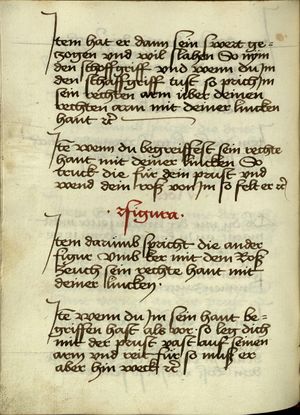 Item hat er dann sein swert ge-
zogen und wil slahen So nym
den schoffgriff und wenn du Im
den schaffgriff tust so prich Im
sein rechten arm uber deinen
rechten arm mit deiner lincken
hant etc
Ite wenn du begreiffest sein rechte
hant mit deiner lincken So
truck die fur dein prust und
wend dein roß von Im so felt er etc
figura
Item darumb spricht die ander
figur umb ker mit dem Roß
Zeuch sein rechte hant mit
deiner lincken
Ite wenn du Im sein hant be-
griffen hast als vor so leg dich
mit der prust vast auf seinen
arm und reit fur so muß er
aber hin weck etc